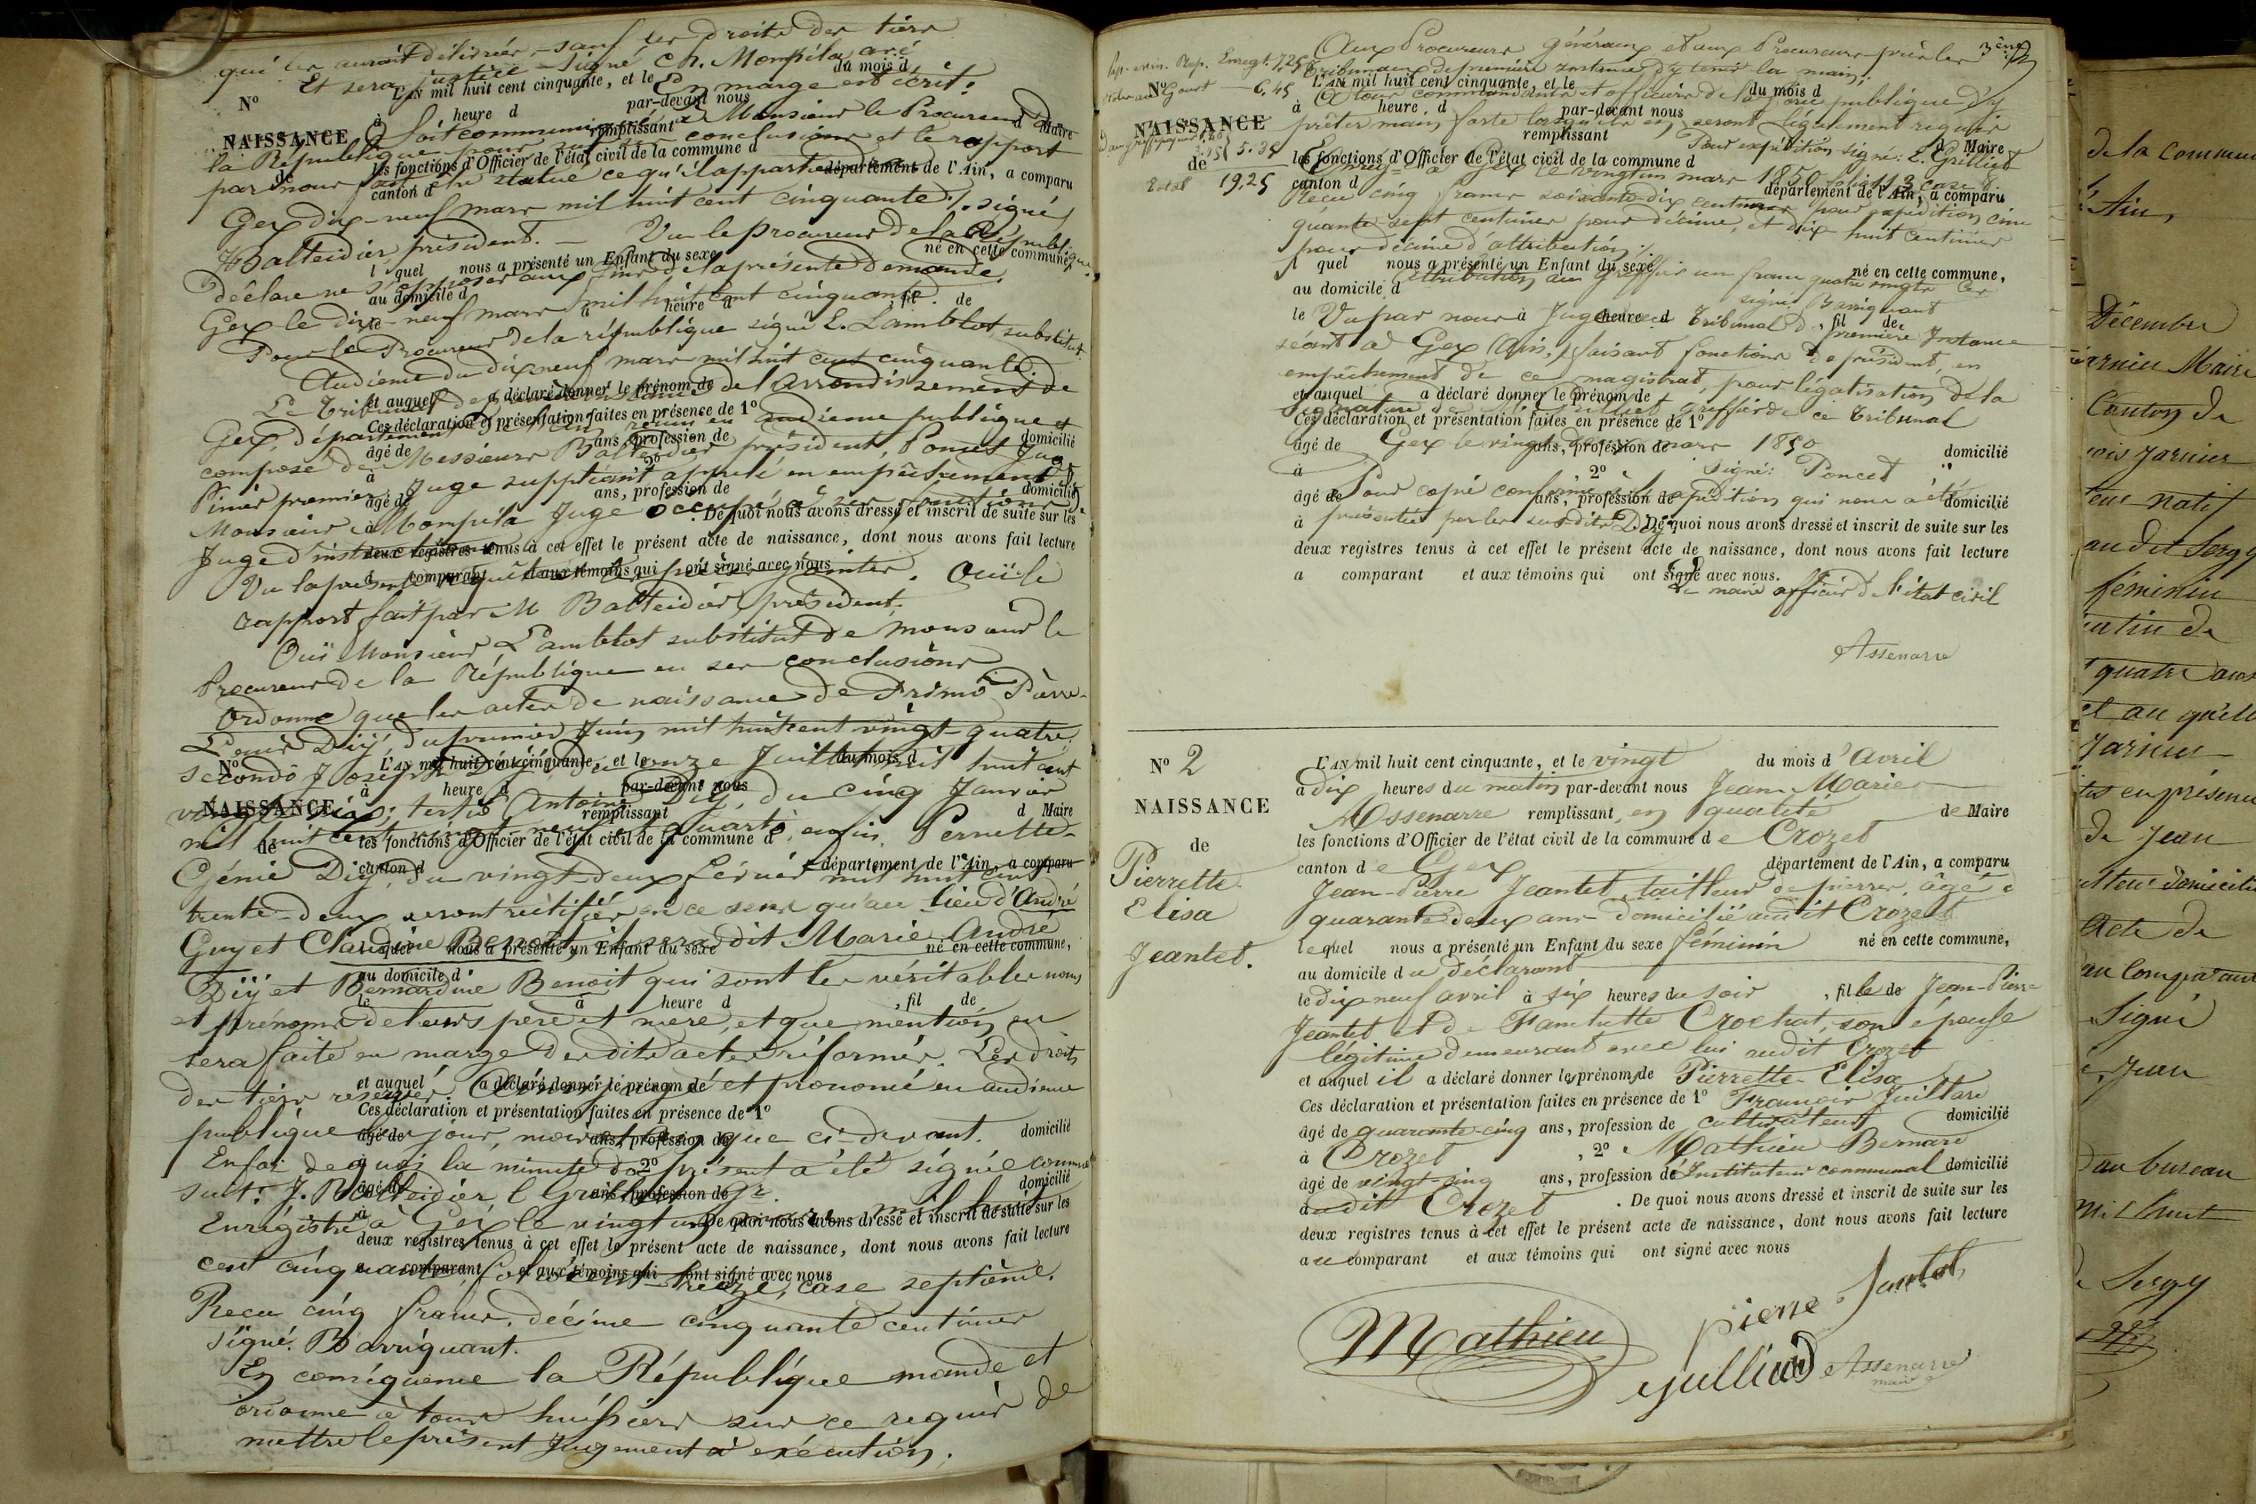 qui les auront délivrés, sauf les droits des tiers
Et sera justice. signé Ch. Mompéla avé
L'AN mil huit cent cinquante, et le du mois d
En marge est écrit:
N°
à heure d par-devant nous
Soit communiqué à Monsieur le Procureur de
NAISSANCE
remplissant d Maire
la République pour ses conclusions et le rapport
de
les fonctions d'Officier de l'état civil de la commune d
par nous fait être statué ce qu'il appartiendra
canton d département de l'Ain, a comparu
Gex dix-neuf mars mil huit cent cinquante. signé
Balteidier, président. — Vu le procureur de la République
l quel nous a présenté un Enfant du sexe né en cette commune,
déclare ne s'opposer aux fins de la présente demande.
au domicile d
Gex le dix-neuf mars mil huit cent cinquante.
le à heure d , fil de
Pour le Procureur de la république signé L. Lambelot, substitut.
Audience du dix neuf mars mil huit cent cinquante.
Le tribunal de première instance de l'arrondissement de
et auquel a déclaré donner le prénom de
Gex, département de l'Ain, réuni en audience publique et
Ces déclaration et présentation faites en présence de 1°
composé de Messieurs Balteidier président, Poncet Juge
âgé de ans, profession de domicilié
à 2°
Pinier premier Juge suppléant appelé en empêchement de
âgé de ans, profession de domicilié
Monsieur Mompéla Juge occupé à ses fonctions de
à . De quoi nous avons dressé et inscrit de suite sur les
Juge d'instruction
deux registres tenus à cet effet le présent acte de naissance, dont nous avons fait lecture
Vu la présente requête et les pièces y jointes. Ouï le
a comparant et aux témoins qui ont signé avec nous
rapport fait par M Balteidier président.
Ouï Monsieur Lambelot substitut de Monsieur le
Procureur de la République en ses conclusions
Ordonne que les actes de naissance de Primo Pierre-
Louis Diÿ, du premier Juin mil huit cent vingt-quatre;
secondo Joseph Diÿ du onze Juillet mil huit cent
N° L'AN mil huit cent cinquante, et le du mois d
à heure d par-devant nous
vingt-six; tertio Antoine Diÿ, du cinq Janvier
NAISSANCE
remplissant d Maire
mil huit cent vingt neuf et quarto, enfin Pernette-
de
les fonctions d'Officier de l'état civil de la commune d
Génie Diÿ, du vingt-deux février mil huit cent
canton d département de l'Ain, a comparu
trente-deux seront rectifiés en ce sens qu'au lieu d'André
Guy et Claudine Benoit, il sera dit Marie André
l quel nous a présenté un Enfant du sexe né en cette commune,
au domicile d
Diÿ et Bernardine Benoit qui sont les véritables noms
le à heure d , fil de
et prénoms de leurs père et mère, et que mention en
sera faite en marge desdits actes réformés. Les droits
et auquel a déclaré donner le prénom de
des tiers réservés. Ainsi jugé et prononcé en audience
Ces déclaration et présentation faites en présence de 1°
publique les jour, mois et an que ci-devant.
âgé de ans, profession de domicilié
à 2°
Enfoi de quoi la minute du présent a été signée comme
âgé de ans, profession de domicilié
suit: J. Balteidier, E Grilliet, gr.
à . De quoi nous avons dressé et inscrit de suite sur les
Enrégistré à Gex le vingt un mars mil huit
deux registres tenus à cet effet le présent acte de naissance, dont nous avons fait lecture
cent cinquante, folio cent treize, case septième.
a comparant et aux témoins qui ont signé avec nous
Reçu cinq francs, décime cinquante centimes
signé. Barriquant.
En conséquence la République mande et
ordonne à tous huissiers sur ce requis de
mettre le présent Jugement à exécution.
3ème
Aux Procureurs généraux et aux Procureurs près les
tribunaux de première instance d'y tenir la main;
Enregt. 7,25
N° — 6.45
L'AN mil huit cent cinquante, et le du mois d
à tous commandants et officiers de la force publique d'y
à heure d par-devant nous
prêter main forte lorsqu'ils en seront légalement requis
NAISSANCE
remplissant d Maire
Pour expédition signé: E. Grilliet
5.35
de
les fonctions d'Officier de l'état civil de la commune d
Total 19,25
Enreg. à Gex le vingt un mars 1850 folio 113 case 8
canton d département de l'Ain, a comparu
Reçu cinq francs soixante-dix centimes pour expédition cin
quante sept centimes pour décime, et dix huit centimes
pour décime d'attribution
l quel nous a présenté un Enfant du sexe né en cette commune,
au domicile d
attribution au greffier un franc quatre vingts cts
signé Barriquant
le à heure d , fil de
Vu par nous Juge au Tribunal de première Instance
séant à Gex (Ain,) faisant fonctions de président, en
empêchement de ce magistrat, pour légalisation de la
et auquel a déclaré donner le prénom de
signature de Mr Grilliet greffier de ce tribunal
Ces déclaration et présentation faites en présence de 1°
âgé de ans, profession de domicilié
Gex le vingt deux mars 1850
à , 2°
Signé: Poncet
âgé de ans, profession de domicilié
Pour copie conforme à l'expédition qui nous a été
présentée par les susdits Diÿ
à . De quoi nous avons dressé et inscrit de suite sur les
deux registres tenus à cet effet le présent acte de naissance, dont nous avons fait lecture
a comparant et aux témoins qui ont signé avec nous.
Le maire officier de l'état civil
Assenarre
N° 2
L'AN mil huit cent cinquante, et le vingt du mois d'avril
à dix heures du matin par-devant nous Jean-Marie
NAISSANCE
Assenarre remplissant, en qualité de Maire
de
les fonctions d'Officier de l'état civil de la commune de Crozet
Pierrette
canton de Gex département de l'Ain, a comparu
Jean-Pierre Jeantet, tailleur de pierres, âgé de
Elisa
quarante deux ans domicilié audit Crozet
Jeantet.
lequel nous a présenté un Enfant du sexe féminin né en cette commune,
au domicile du déclarant
le dix neuf avril à six heures du soir , fille de Jean-Pierre
Jeantet et de Crochat, son épouse
légitime demeurant avec lui audit Crozet
et auquel il a déclaré donner le prénom de Pierrette-Elisa
Ces déclaration et présentation faites en présence de 1° François Juillard
âgé de quarante-cinq ans, profession de cultivateur domicilié
à Crozet , 2° Mathieu Bernard
âgé de vingt-cinq ans, profession d'Instituteur communal domicilié
audit Crozet . De quoi nous avons dressé et inscrit de suite sur les
deux registres tenus à cet effet le présent acte de naissance, dont nous avons fait lecture
au comparant et aux témoins qui ont signé avec nous
Mathieu
pierre Jantet
Julliard
Assenarre
maire
de la commune
l'Ain,
Décembre
Maire
Canton de
natif
audit Sergy
féminin
quatre ans
et au quel
en présence
de Jean
domicilié
Acte de
au comparant
Signé
Jean
au bureau
mil huit
Sergy